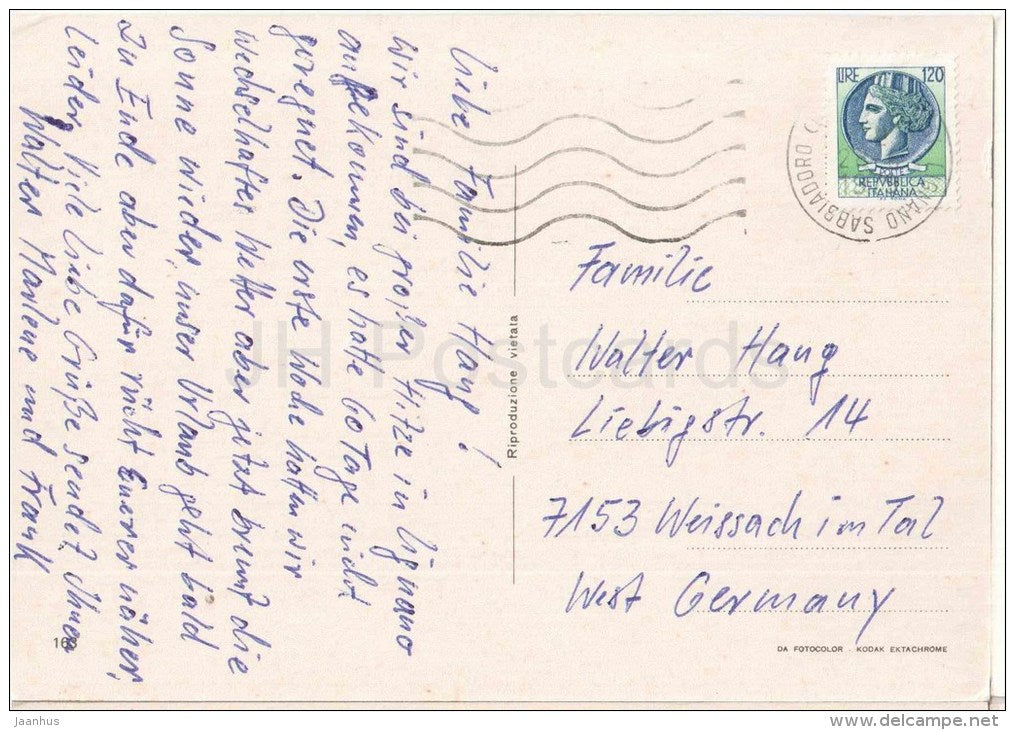 Liebe Familie Haug!
Wir sind bei großer Hitze in Lignano
angekommen, es hatte 60 Tage nicht
geregnet. Die erste Woche hatten wir
wechselhaftes Wetter aber jetzt brennt die
Sonne wieder, unser Urlaub geht bald
zu Ende aber dafür rückt Euerer näher,
leider. Viele liebe Grüße sendet Ihnen
Walter Marlene und Frank
163
Riproduzione vietata
LIRE 120
POSTE
REPVBBLICA
ITALIANA
SABBIADORO
Familie
Walter Haug
Liebigstr. 14
7153 Weissach im Tal
West Germany
DA FOTOCOLOR - KODAK EKTACHROME
JH Postcards
Jaanhus
www.delcampe.net